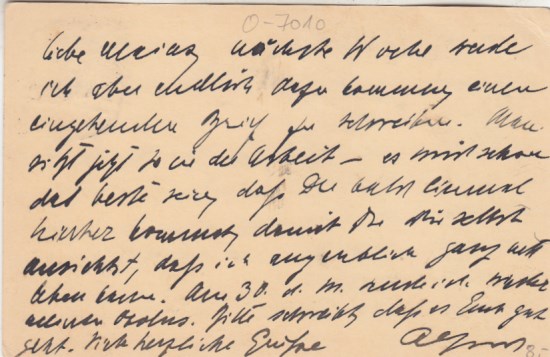 O-7010
liebe nächste Woche werde
ich aber endlich dazu kommen, einen
eingehenden Brief zu schreiben. Man
sitzt jetzt so in der Arbeit – es wird schon
das beste sein, daß Du bald einmal
hierher kommst, damit Du Dir selbst
ansiehst, daß ich augenblicklich ganz nett
leben kann. Am 30. d. M. wieder
meinen Bitte schreibt, daß es Euch gut
geht. Viele herzliche Grüße